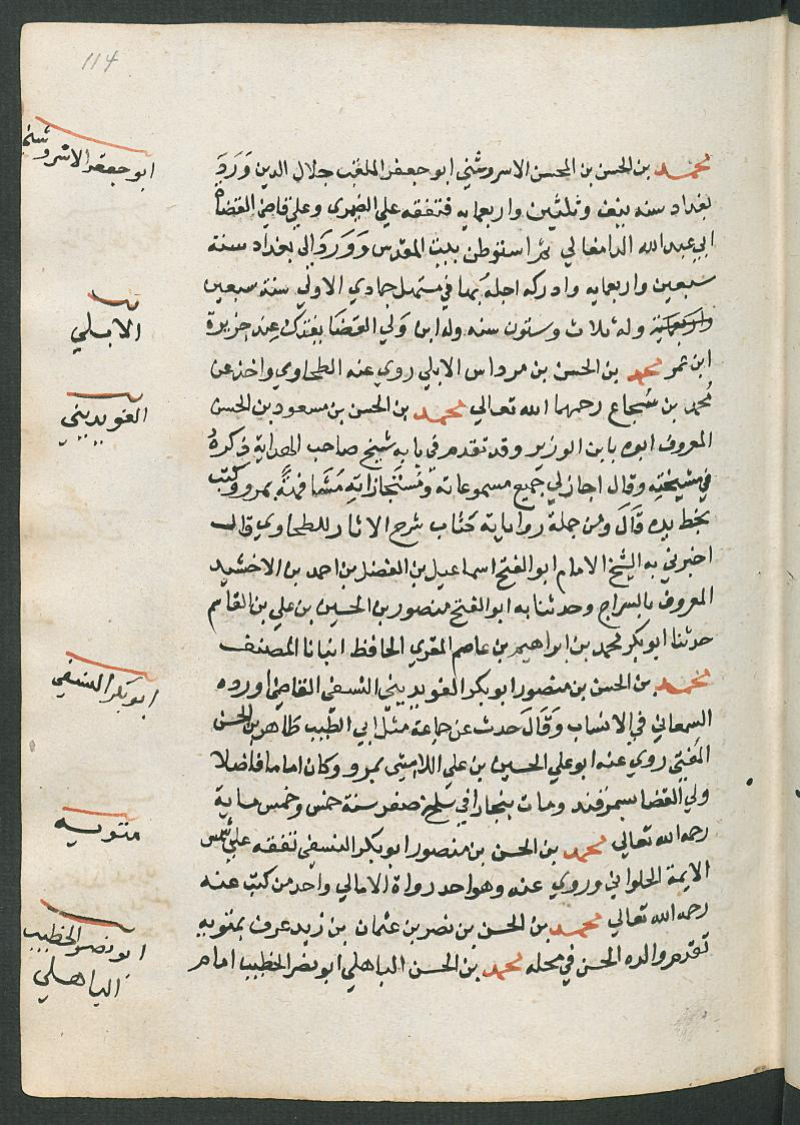 114
محمد بن الحسن بن المحسن الاسروشني ابو جعفر الملقب جلال الدين وَرَدَ
بغداد سنه نيف وثلثين واربعمايه فتفقه علي الضيمري وعلي قاضي القضاة
ابي عبد الله الدامغالي ثم استوطن ببيت المقدس وَوَرَدَ الي بغداد سنة
سبعين واربعمايه وادركه اجله بها في مستهل جمادي الاولي سنة سبعين
واربعماية وله ثلاث وستون سنه وله ابن ولي القضا بفنك عند جزيرة
ابن عمر محمد بن الحسن بن مرداس الابلي روي عنه الطحاوي واخذ عن
محمد بن شجاع رحمهما الله تعالي محمد بن الحسن بن مسعود بن الحسن
المعروف ابوه بابن الوزير وقد تقدم في بابه شيخ صاحب الهداية ذكرهُ
في مشيخته وقال اجاز لي جميع مسموعاته ومُستجازاتِهِ مُشافهةً بمرو وكتب
بخط يده قَالَ ومن جملة رواياته كتاب شرح الاثار للطحاوي قال
اخبرني به الشيخ الامام ابو الفتح اسماعيل بن الفضل بن احمد بن الاخشيد
المعروف بالسراج وحدثنا به ابو الفتح منصور بن الحسين بن علي بن القاسم
حدثنا ابو بكر محمد بن ابراهيم بن عاصم المقري الحافظ انبانا المصنف
محمد بن الحسن بن منصور ابو بكر الغويديني النسفي القاضي اورده
السمعاني في الانساب وَقَالَ حدث عن جماعة مثل ابي الطيب طاهر بن الحسن
المُفتي روي عنه ابو علي الحسين بن علي اللامشي بمرو وكان اماما فاضلا
ولي القضا بسمرقند ومات ببخارا في سلخ صفر سنة خمس وخمس ماية
رحمه الله تعالي محمد بن الحسن بن منصور ابو بكر النسفي تفقه علي شمس
الايمة الحلواني وروي عنه وهو احد رواة الامالي واحد من كتب عنه
رحمه الله تعالي محمد بن الحسن بن نصر بن عثمان بن زيد عرف بمتويه
تقدم والده الحسن في محله محمد بن الحسن الباهلي ابو نصر الخطيب امام
ابو جعفر الاشروشني
الابلي
الغويديني
ابو بكر النسفي
متويه
ابو نصر الخطيب
الباهلي